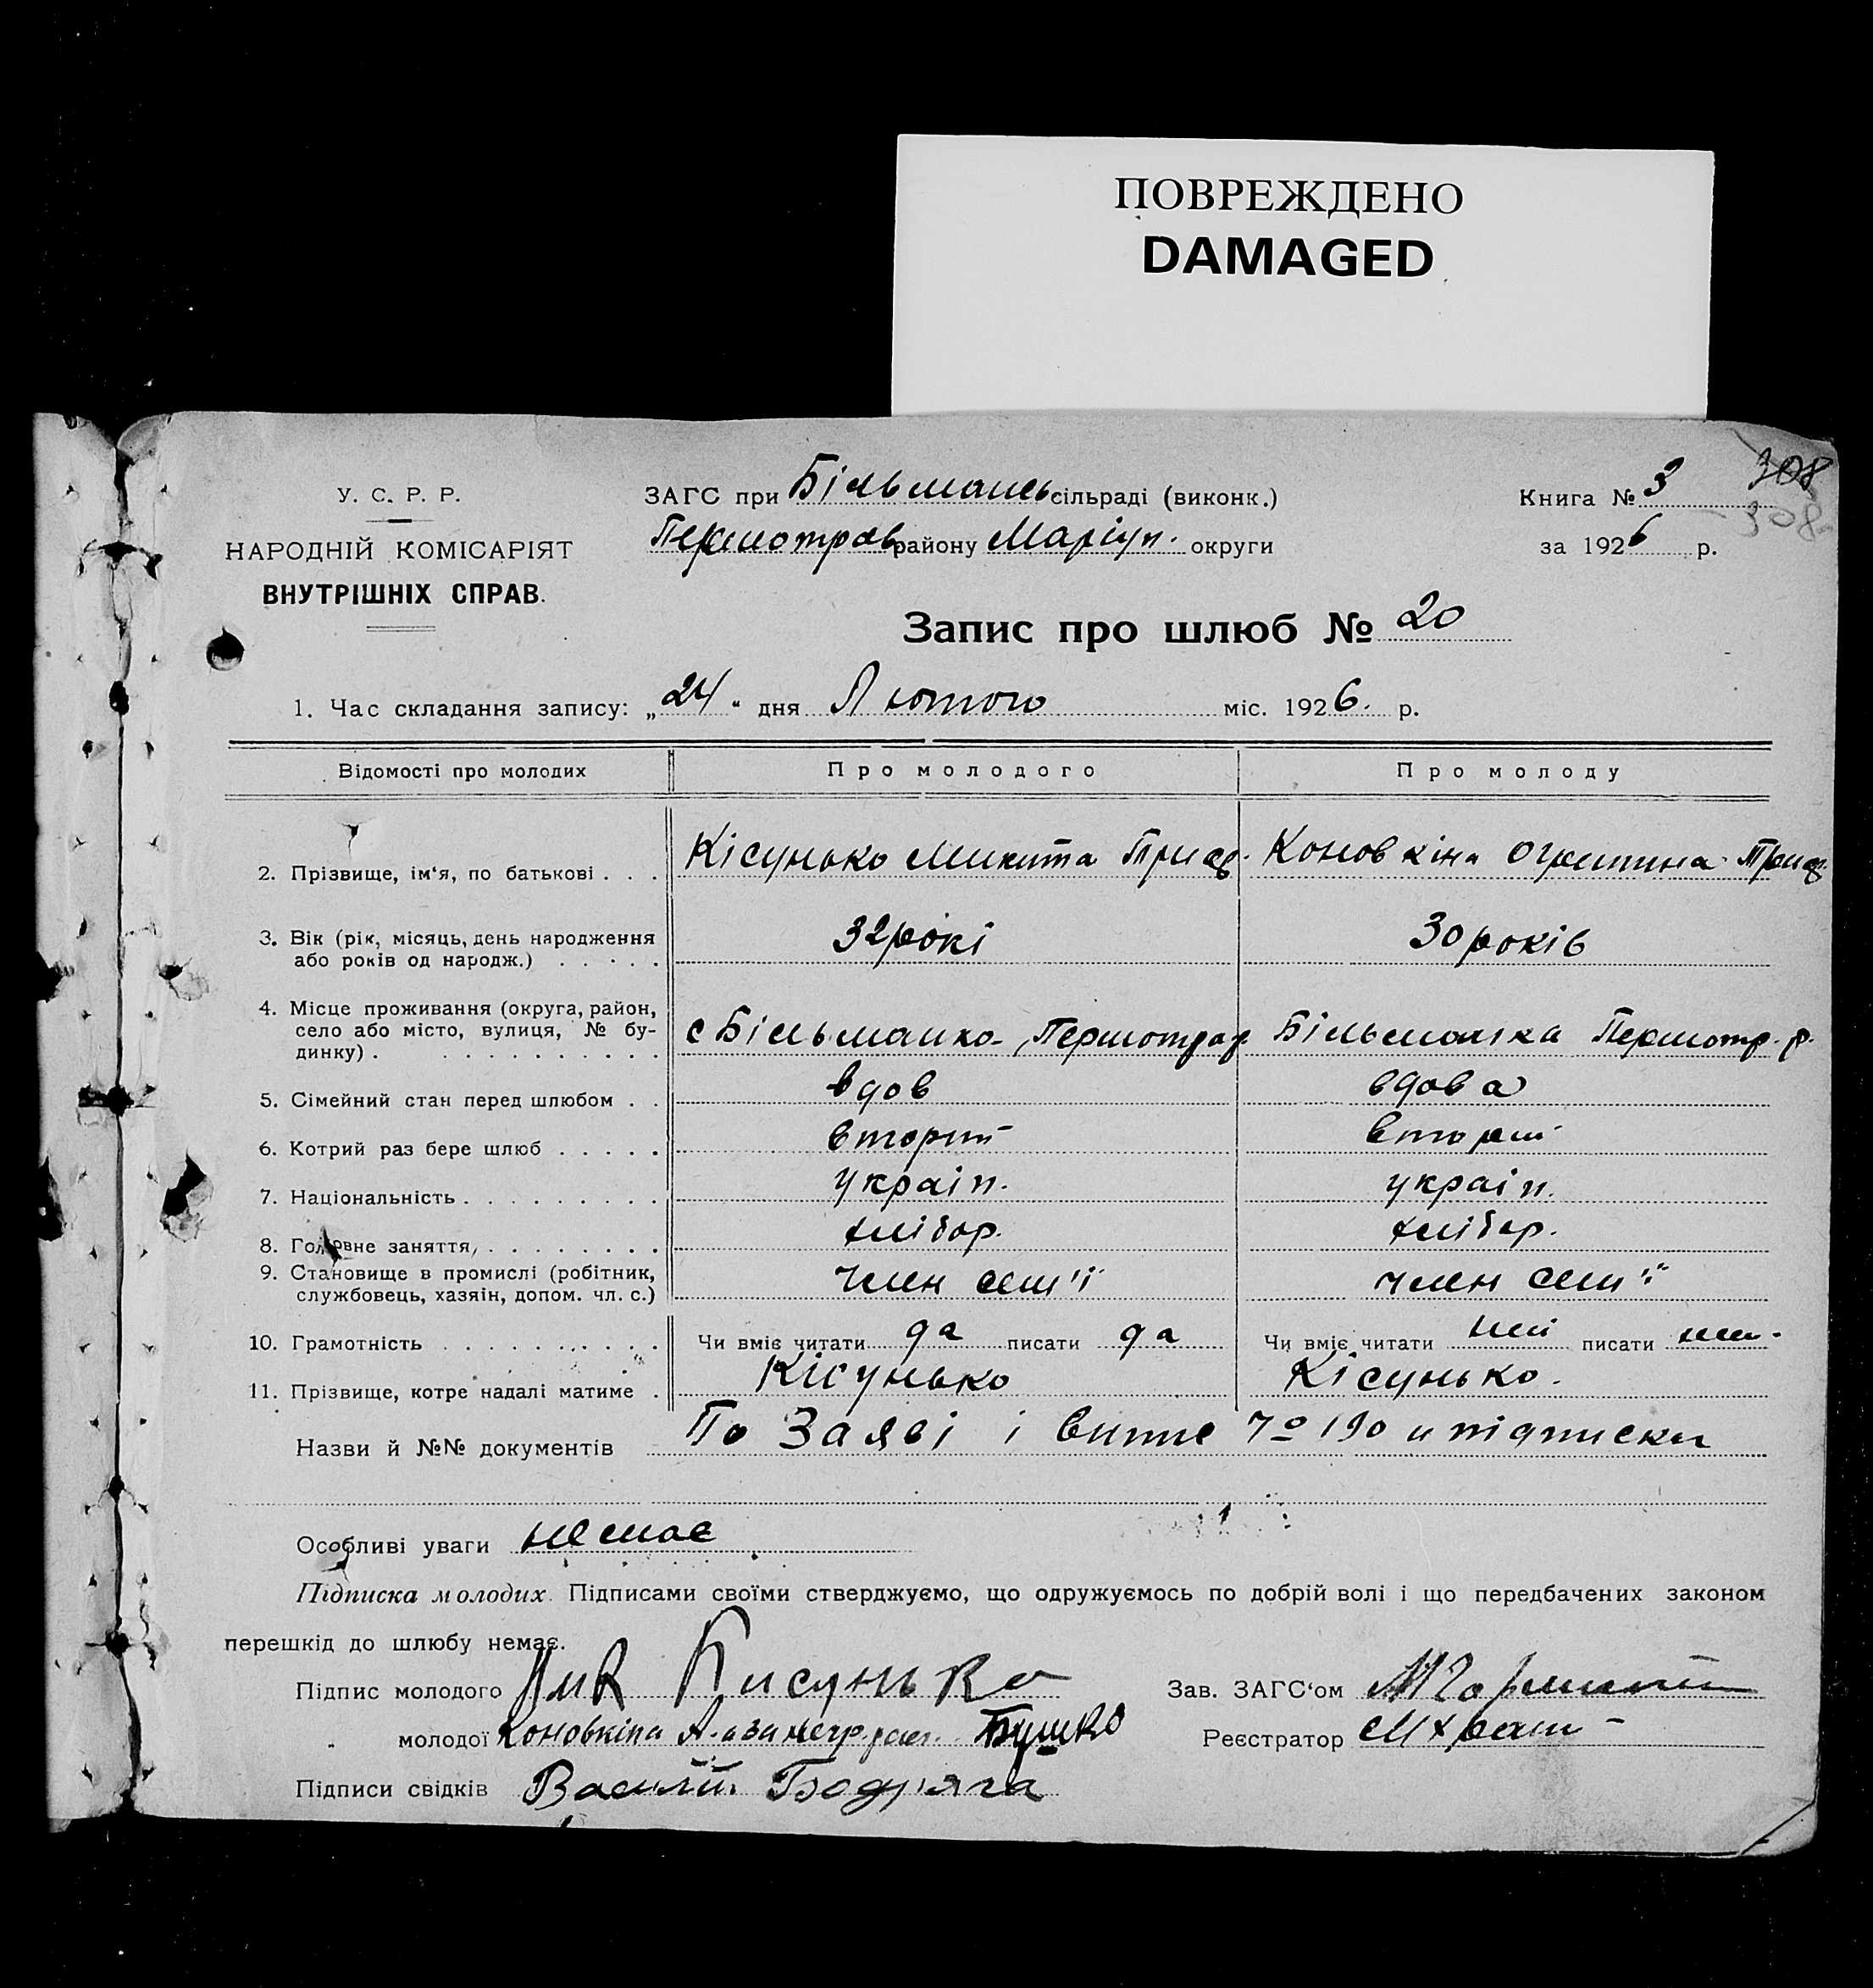 ПОВРЕЖДЕНО
DAMAGED
308
308
У. С. Р. Р.
НАРОДНІЙ КОМІСАРІЯТ
ВНУТРІШНІХ СПРАВ.
ЗАГС при Більмансь сільраді (виконк.)
Першотрав району Маріуп. округи
Книга № 3
за 1926 р.
Запис про шлюб № 20
1. Час складання запису: „24" дня Лютого міс. 1926. р.
Відомості про молодих Про молодого Про молоду
2. Прізвище, ім'я, по батькові . . . Кісунько Микита Триф. Коновкіна Огрипина Триф.
3. Вік (рік, місяць, день народження
або років од народж.) . . . . . 32 рокі 30 років
4. Місце проживання (округа, район,
село або місто, вулиця, № бу-
динку) . . . . . . . . . . . с Більманка-, Першотрав. Більманка Першотр. р.
5. Сімейний стан перед шлюбом . . вдов вдова
6. Котрий раз бере шлюб . . . . . вторий вторий
7. Національність . . . . . . . . . україн. україн.
8. Головне заняття, . . . . . . . . хлібор. хлібор.
9. Становище в промислі (робітник,
службовець, хазяін, допом. чл. с.) член сем'ї член сем'ї
10. Грамотність . . . . . . . . . . Чи вміє читати да писати да Чи вміє читати ні писати ні
11. Прізвище, котре надалі матиме . Кісунько Кісунько.
Назви й №№ документів По Заяві і 190 и підписки
Особливі уваги немає
Підписка молодих. Підписами своїми стверджуємо, що одружуємось по добрій волі і що передбачених законом
перешкід до шлюбу немає.
Підпис молодого Кисунько Зав. ЗАГС'ом
молодої Коновкіна А. а за негр. рас. Бушко Реєстратор
Підписи свідків Василій Бодряга